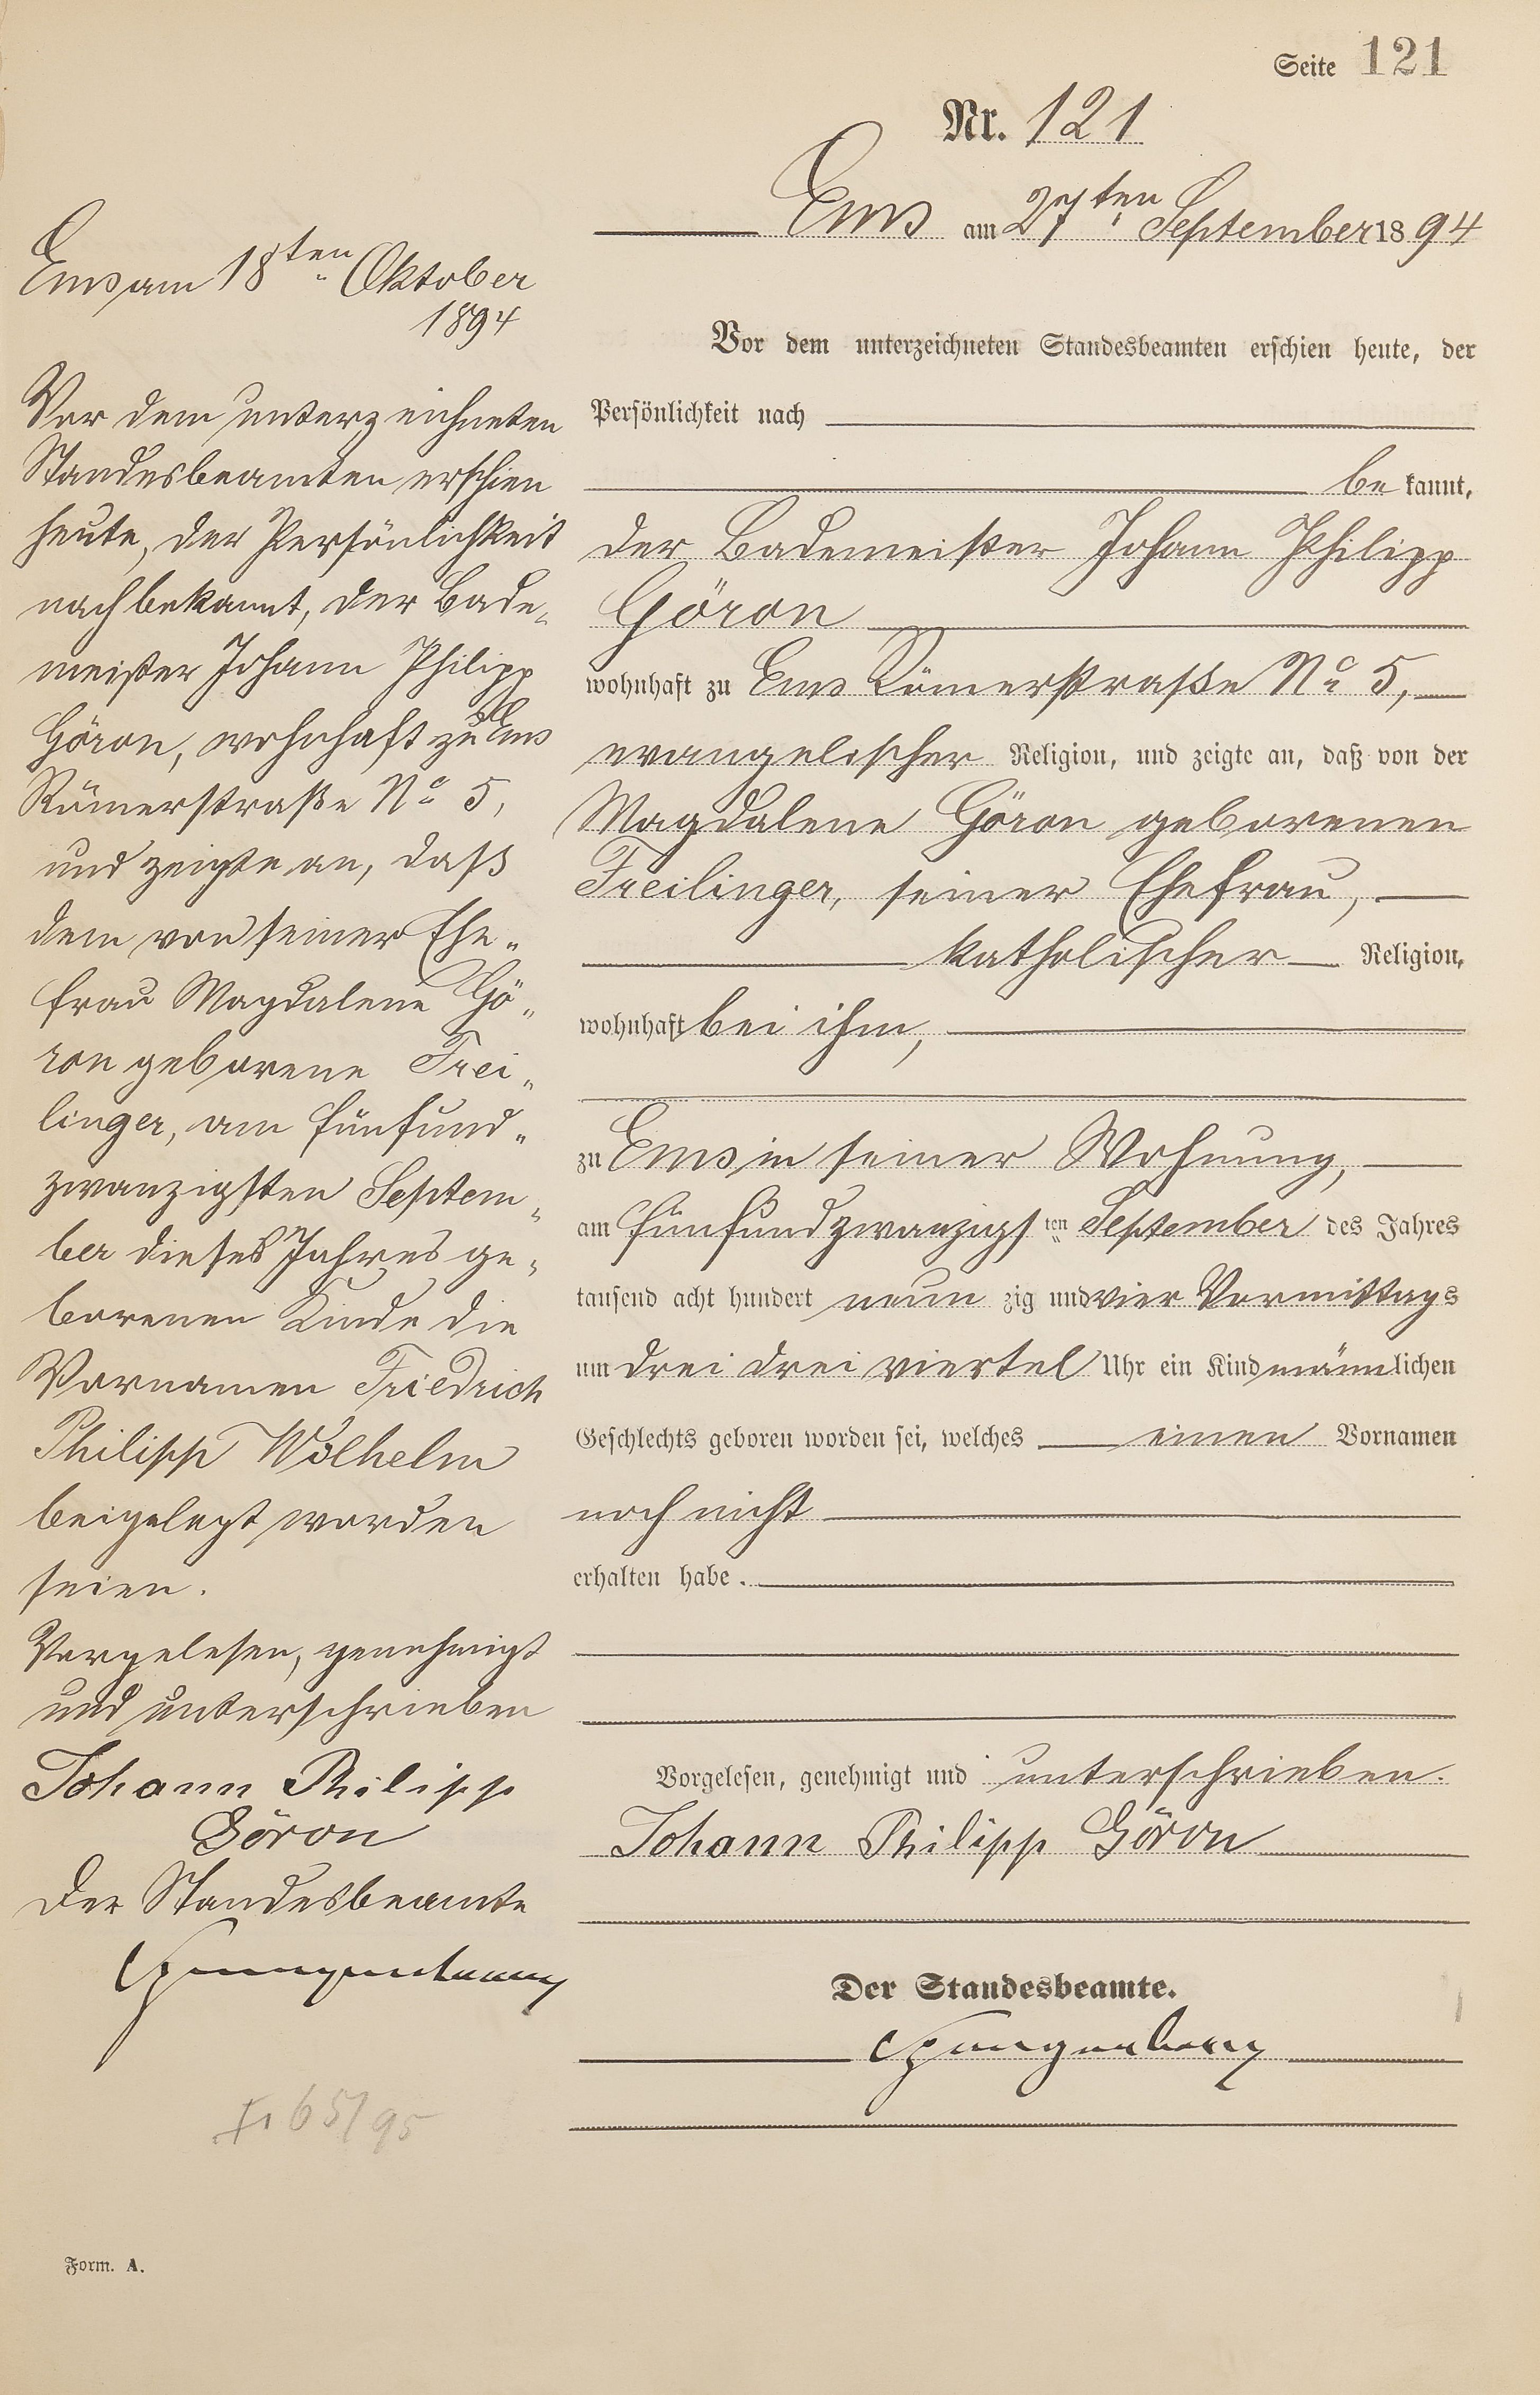 Seite 121
Nr. 121
Ems am 27ten September 1894
Vor dem unterzeichneten Standesbeamten erschien heute, der
Persönlichkeit nach
be kannt,
der Bademeister Johann Philipp
Göron
wohnhaft zu Ems Römerstraße No 5,
evangelischer Religion, und zeigte an, daß von der
Magdalene Göron geborenen
Freilinger, seiner Ehefrau,
katholischer Religion,
wohnhaft bei ihm,
zu Ems in seiner Wohnung,
am fünfundzwanzigsten September des Jahres
tausend acht hundert neun zig und vier Vormittags
um drei drei viertel Uhr ein Kind männlichen
Geschlechts geboren worden sei, welches einen Vornamen
noch nicht
erhalten habe.
Vorgelesen, genehmigt und unterschrieben.
Johann Philipp Göron
Der Standesbeamte.
Spangenberg
Ems am 18ten Oktober
1894
Vor dem unterzeichneten
Standesbeamten erschien
heute, der Persönlichkeit
nach bekannt, der Bade„
meister Johann Philipp
Göron, wohnhaft zu Ems
Römerstraße No 5,
und zeigte an, daß
dem von seiner Ehe„
frau Magdalene Gö„
ron geborene Frei„
linger, am fünfund„
zwanzigsten Septem„
ber dieses Jahres ge„
borenen Kinde die
Vornamen Friedrich
Philipp Wilhelm
beigelegt worden
seien.
Vorgelesen, genehmigt
und unterschrieben
Johann Philipp
Göron
Der Standesbeamte
Spangenberg
65/95
Form. A.